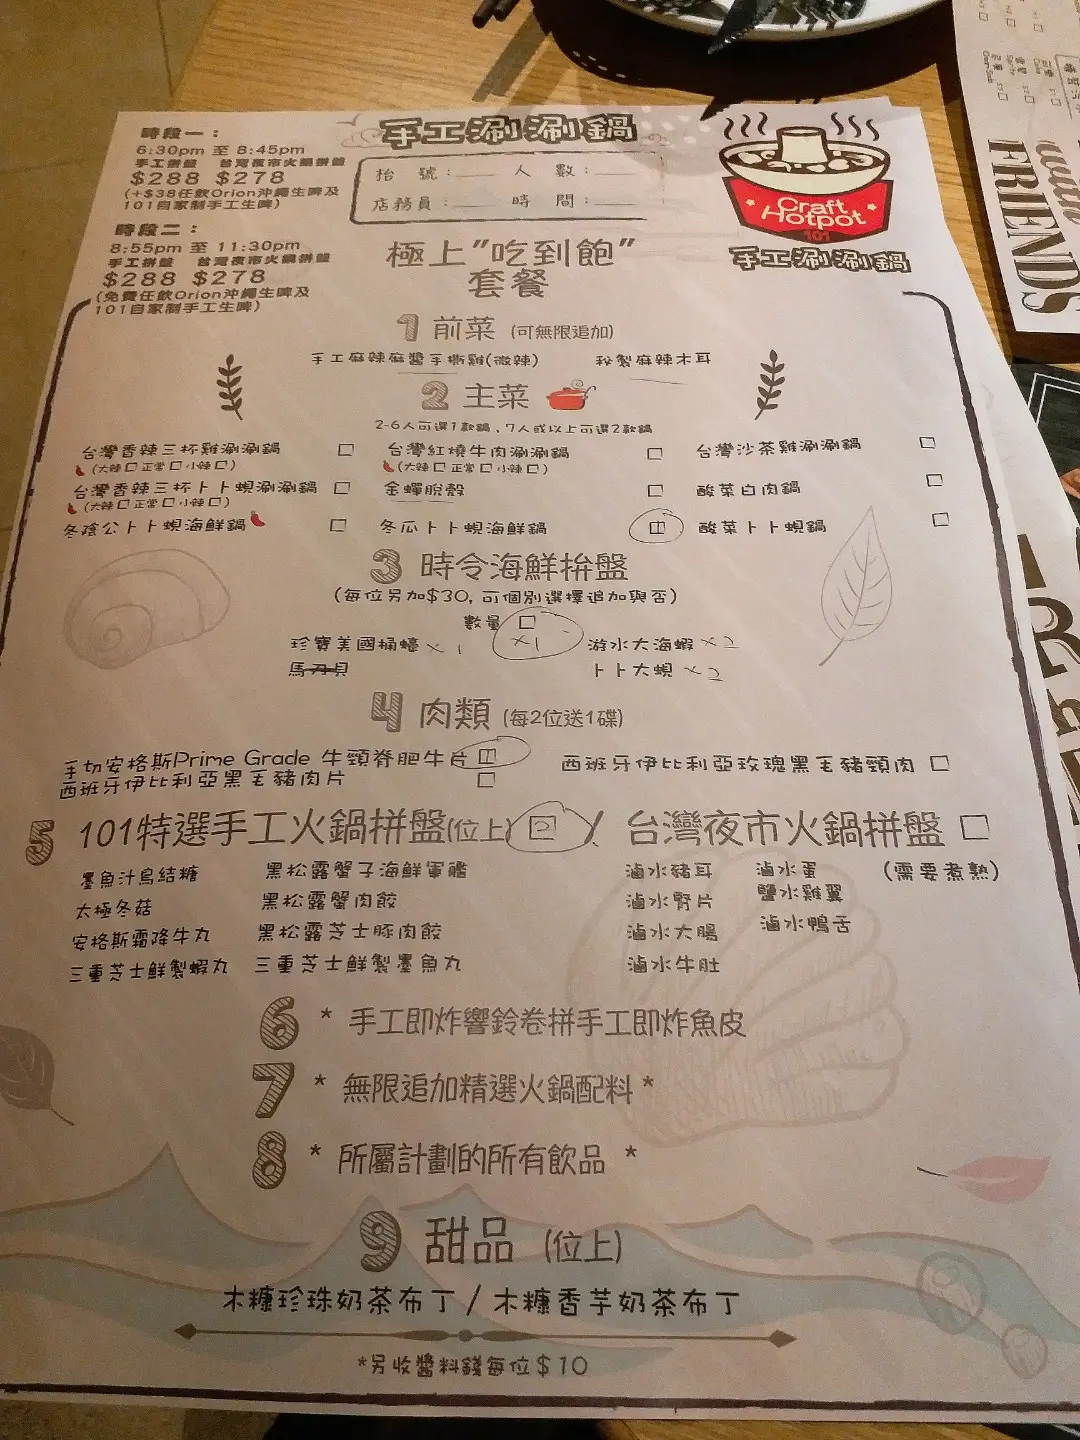 時段一：
6:30pm 至 8:45pm
手工拼盤 台灣夜市火鍋拼盤
$288 $278
(+$38任飲Orion沖繩生啤及
101自家制手工生啤)
時段二：
8:55pm 至 11:30pm
手工拼盤 台灣夜市火鍋拼盤
$288 $278
(免費任飲Orion沖繩生啤及
101自家制手工生啤)
手工涮涮鍋
枱 號：___ 人 數：___
店務員：___ 時 間：___
Craft
Hotpot
101
手工涮涮鍋
極上"吃到飽"
套餐
1 前菜 (可無限追加)
手工麻辣麻醬手撕雞(微辣) 秘製麻辣木耳
2 主菜
2-6人可選1款鍋，7人或以上可選2款鍋
台灣香辣三杯雞涮涮鍋 □ 台灣紅燒牛肉涮涮鍋 □ 台灣沙茶雞涮涮鍋 □
(大辣□正常□小辣□) (大辣□正常□小辣□)
台灣香辣三杯卜卜蜆涮涮鍋 □ 金蟬脫殼 □ 酸菜白肉鍋 □
(大辣□正常□小辣□)
冬陰公卜卜蜆海鮮鍋 □ 冬瓜卜卜蜆海鮮鍋 □ 酸菜卜卜蜆鍋 □
3 時令海鮮拚盤
(每位另加$30, 可個別選擇追加與否)
數量 □
x1
珍寶美國桶蠔 x1 游水大海蝦 x2
馬刀貝 卜卜大蜆 x2
4 肉類 (每2位送1碟)
手切安格斯Prime Grade 牛頸脊肥牛片 □ 西班牙伊比利亞玫瑰黑毛豬頸肉 □
西班牙伊比利亞黑毛豬肉片 □
5 101特選手工火鍋拼盤(位上) 2 / 台灣夜市火鍋拼盤 □
墨魚汁鳥結糖 黑松露蟹子海鮮軍艦 滷水豬耳 滷水蛋 (需要煮熟)
太極冬菇 黑松露蟹肉餃 滷水腎片 鹽水雞翼
安格斯霜降牛丸 黑松露芝士豚肉餃 滷水大腸 滷水鴨舌
三重芝士鮮製蝦丸 三重芝士鮮製墨魚丸 滷水牛肚
6 * 手工即炸響鈴卷拼手工即炸魚皮
7 * 無限追加精選火鍋配料 *
8 * 所屬計劃的所有飲品 *
9 甜品 (位上)
木糠珍珠奶茶布丁 / 木糠香芋奶茶布丁
*另收醬料錢每位$10
FRIENDS